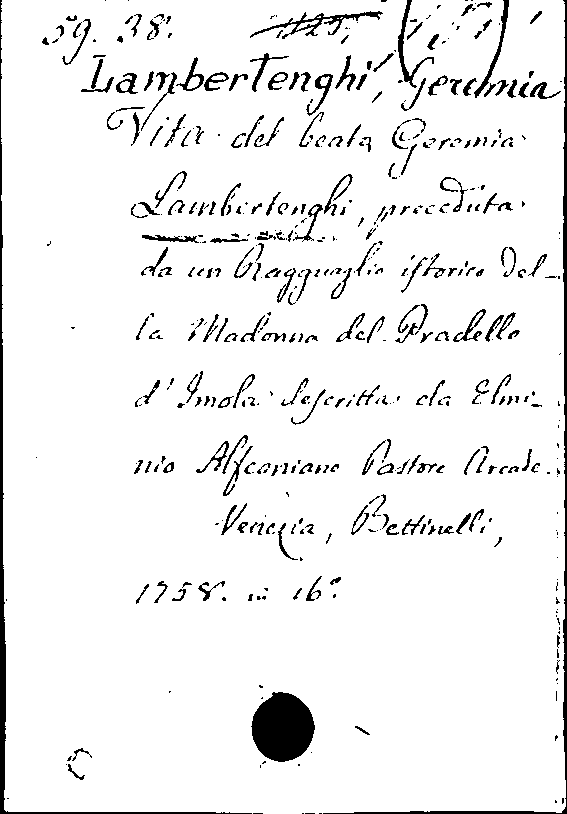 59. 38.
Lambertenghi, Geremia
Vita del beato Geremia
Lambertenghi, preceduta
da un Ragguaglio istorico del-
la Madonna del Pradello
d' Imola descritta da Elmi-
nio Alfeoniano Pastore Arcade.
Venezia, Bettinelli,
1758. in 16º